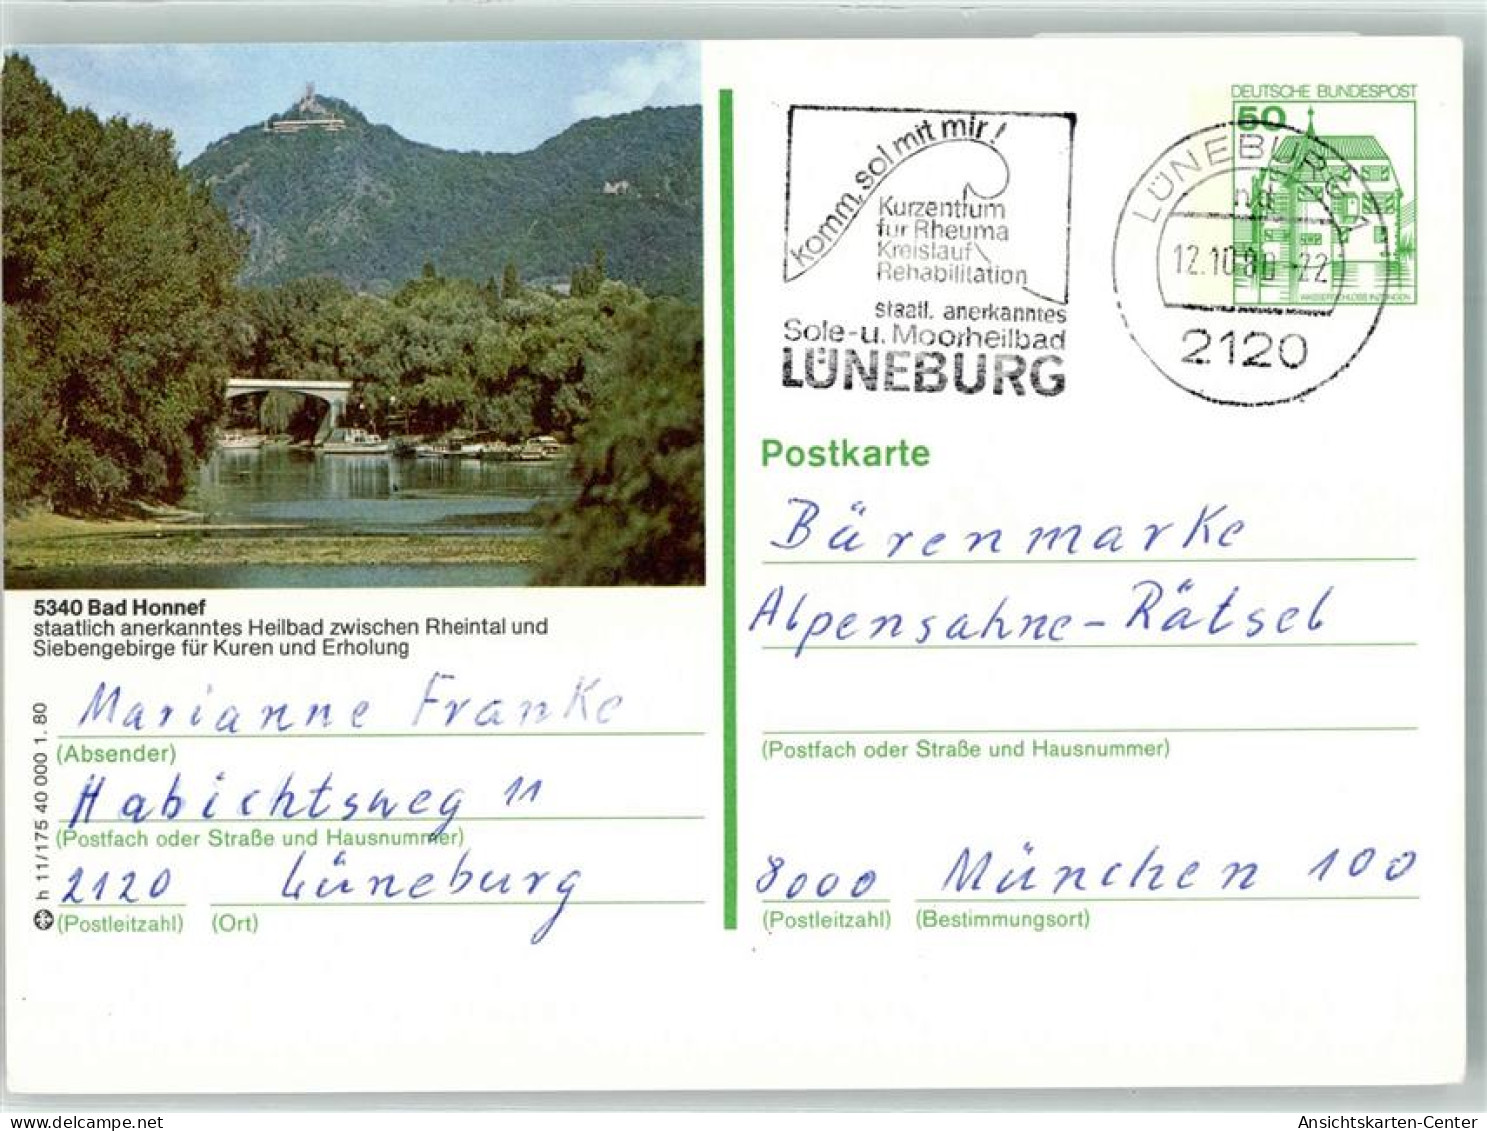 5340 Bad Honnef
staatlich anerkanntes Heilbad zwischen Rheintal und
Siebengebirge für Kuren und Erholung
Marianne Franke
(Absender)
Habichtsweg 11
(Postfach oder Straße und Hausnummer)
2120 Lüneburg
(Postleitzahl) (Ort)
h 11/175 40 000 1. 80
komm, sol mit mir!
Kurzentrum
für Rheuma
Kreislauf
Rehabilitation
staatl. anerkanntes
Sole-u. Moorheilbad
LÜNEBURG
DEUTSCHE BUNDESPOST
50
WASSERSCHLOSS INZLINGEN
LÜNEBURG 1
12.10.80-22
2120
Postkarte
Bärenmarke
Alpensahne-Rätsel
(Postfach oder Straße und Hausnummer)
8000 München 100
(Postleitzahl) (Bestimmungsort)
Ansichtskarten-Center